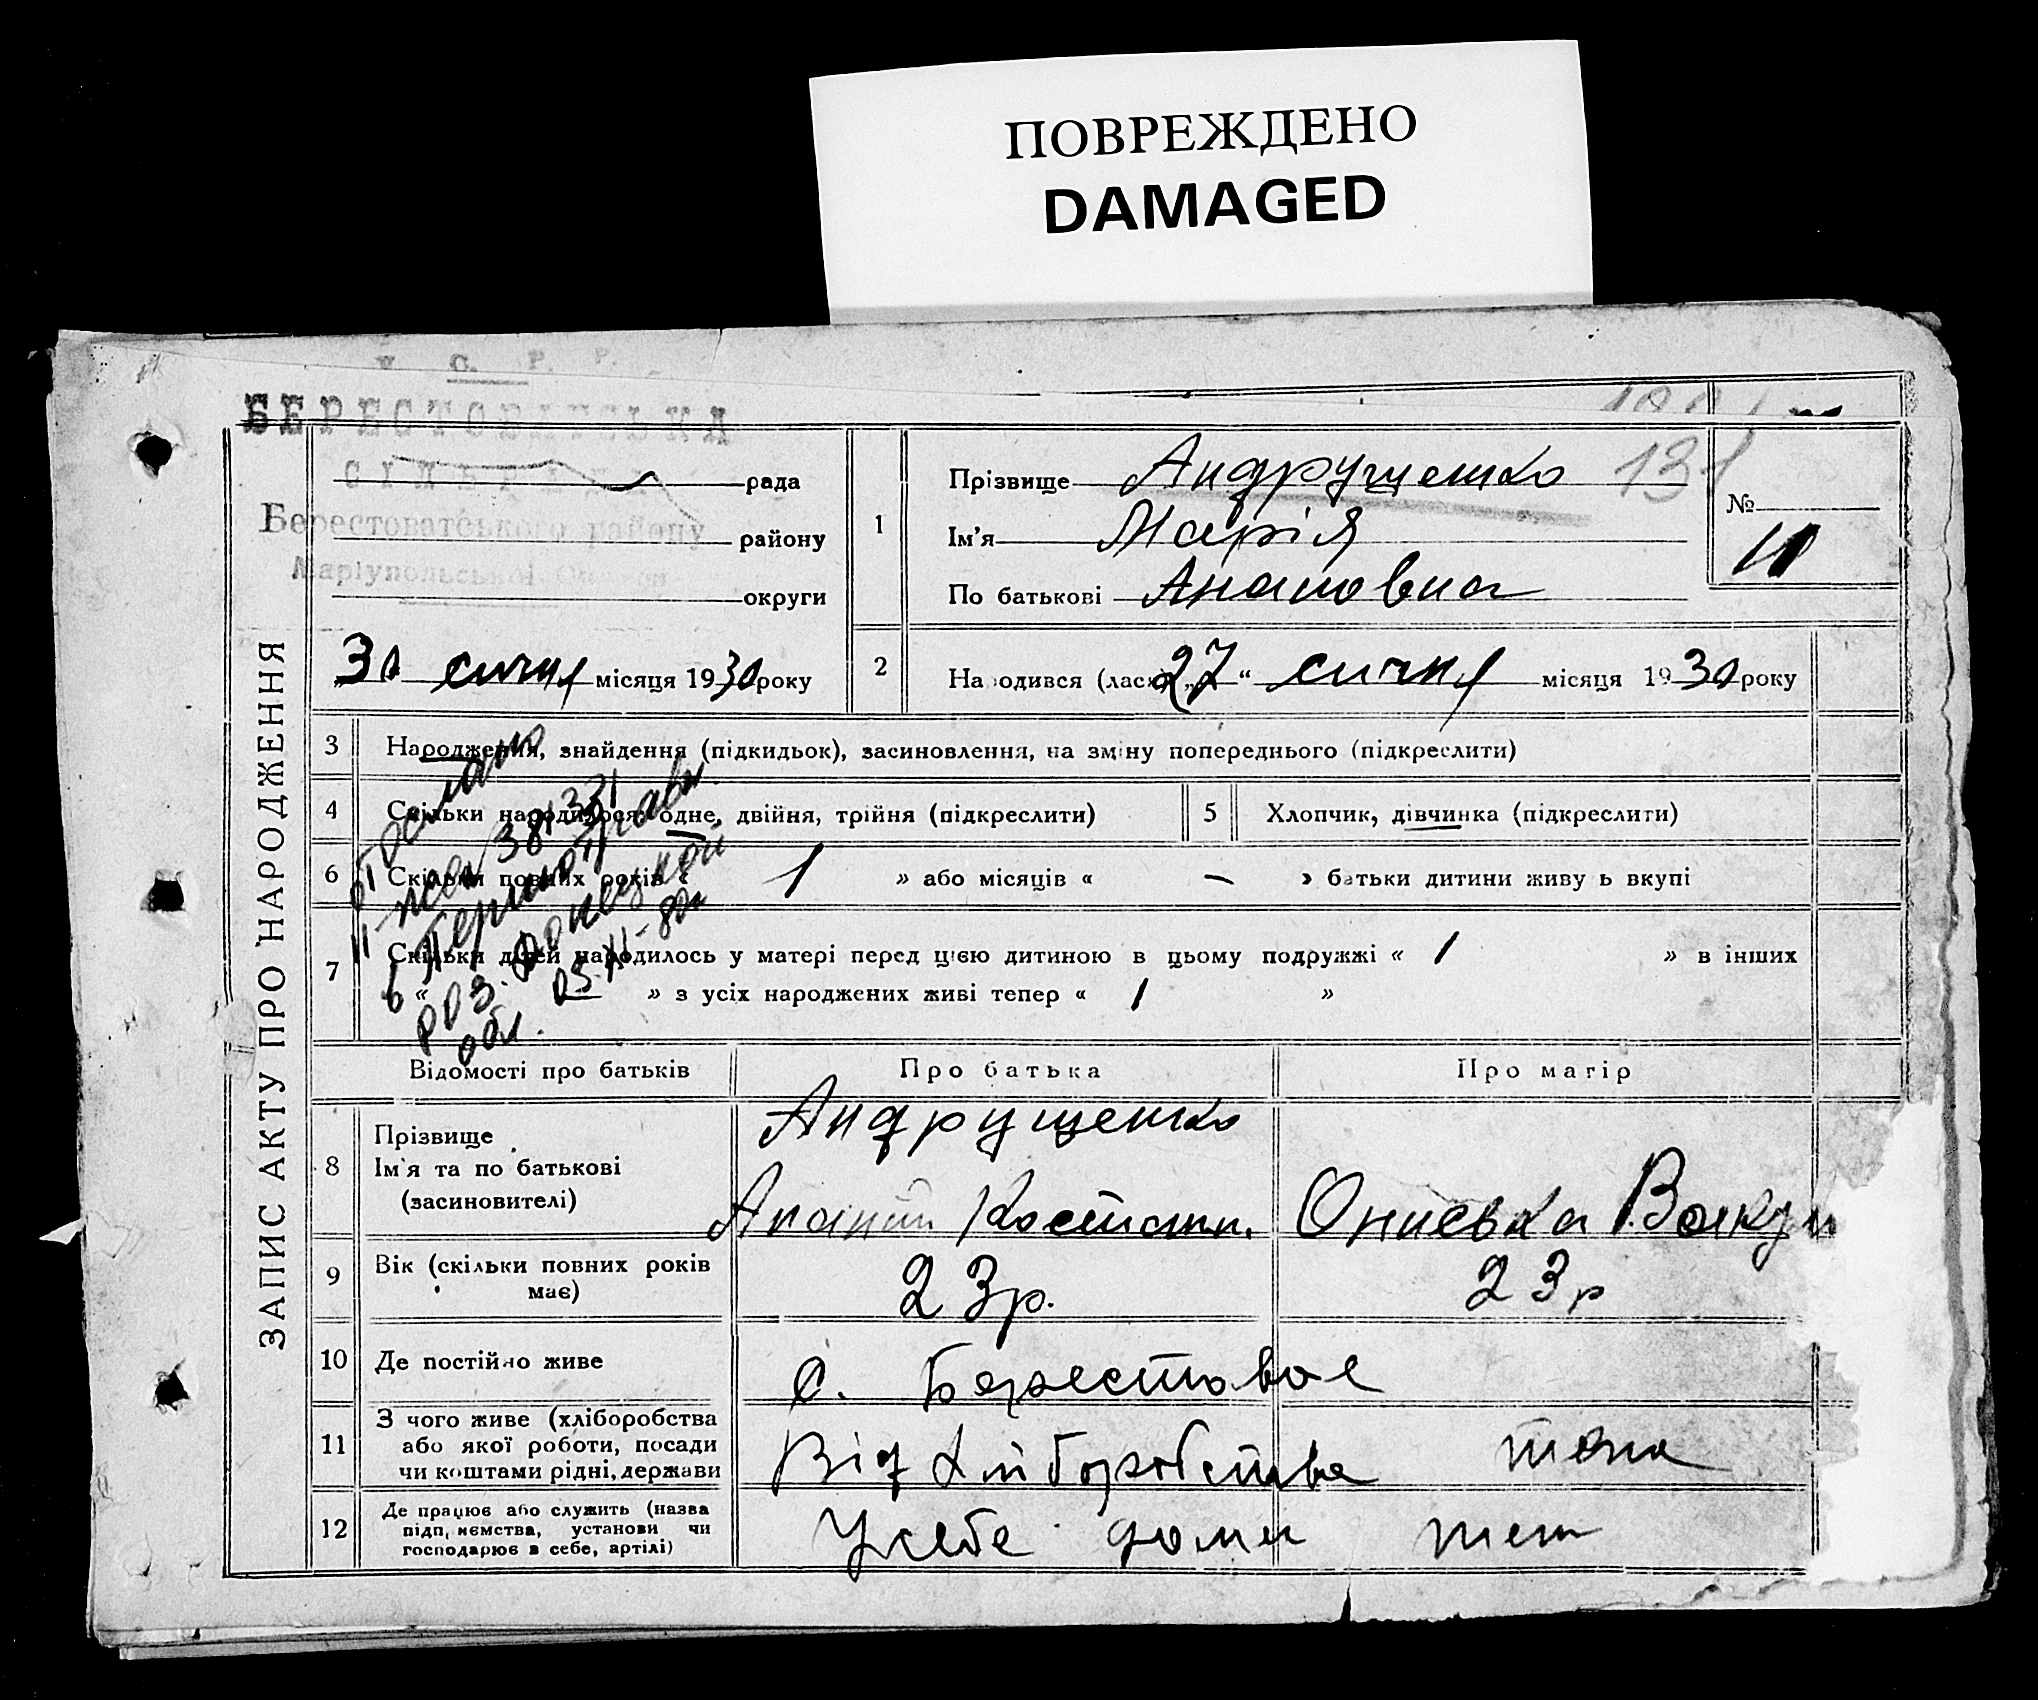 ПОВРЕЖДЕНО
DAMAGED
У. С. Р. Р.
БЕРЕСТОВАТСЬКА
СІЛЬРАДА
рада
Берестоватського району
району
Маріупольської Округи
округи
30 січня місяця 1930 року
1
Прізвище Андрущенко
131
Ім'я Марія
По батькові Анановна
№
11
2
Народився (лася) „27“ січня місяця 1930 року
ЗАПИС АКТУ ПРО НАРОДЖЕННЯ
3 Народження, знайдення (підкидьок), засиновлення, на зміну попереднього (підкреслити)
4 Скільки народилося: одне, двійня, трійня (підкреслити)
5 Хлопчик, дівчинка (підкреслити)
6 Скільки повних років « 1 » або місяців « — » батьки дитини живуть вкупі
7 Скільки дітей народилось у матері перед цією дитиною в цьому подружжі « 1 » в інших
« — » з усіх народжених живі тепер « 1 »
Отослано
в Першотравн.
Донецкой
обл. 05.XI-80г
Відомості про батьків
Про батька
Про матір
8 Прізвище
Ім'я та по батькові
(засиновителі)
Андрущенко
Ананій Костянт.
Ониська Вакул
9 Вік (скільки повних років
має)
23р.
23р
10 Де постійно живе
с. Берестовое
11 З чого живе (хліборобства
або якої роботи, посади
чи коштами рідні, держави
Від хліборобства
тоже
12 Де працює або служить (назва
підприємства, установи чи
господарює в себе, артілі)
У себе дома